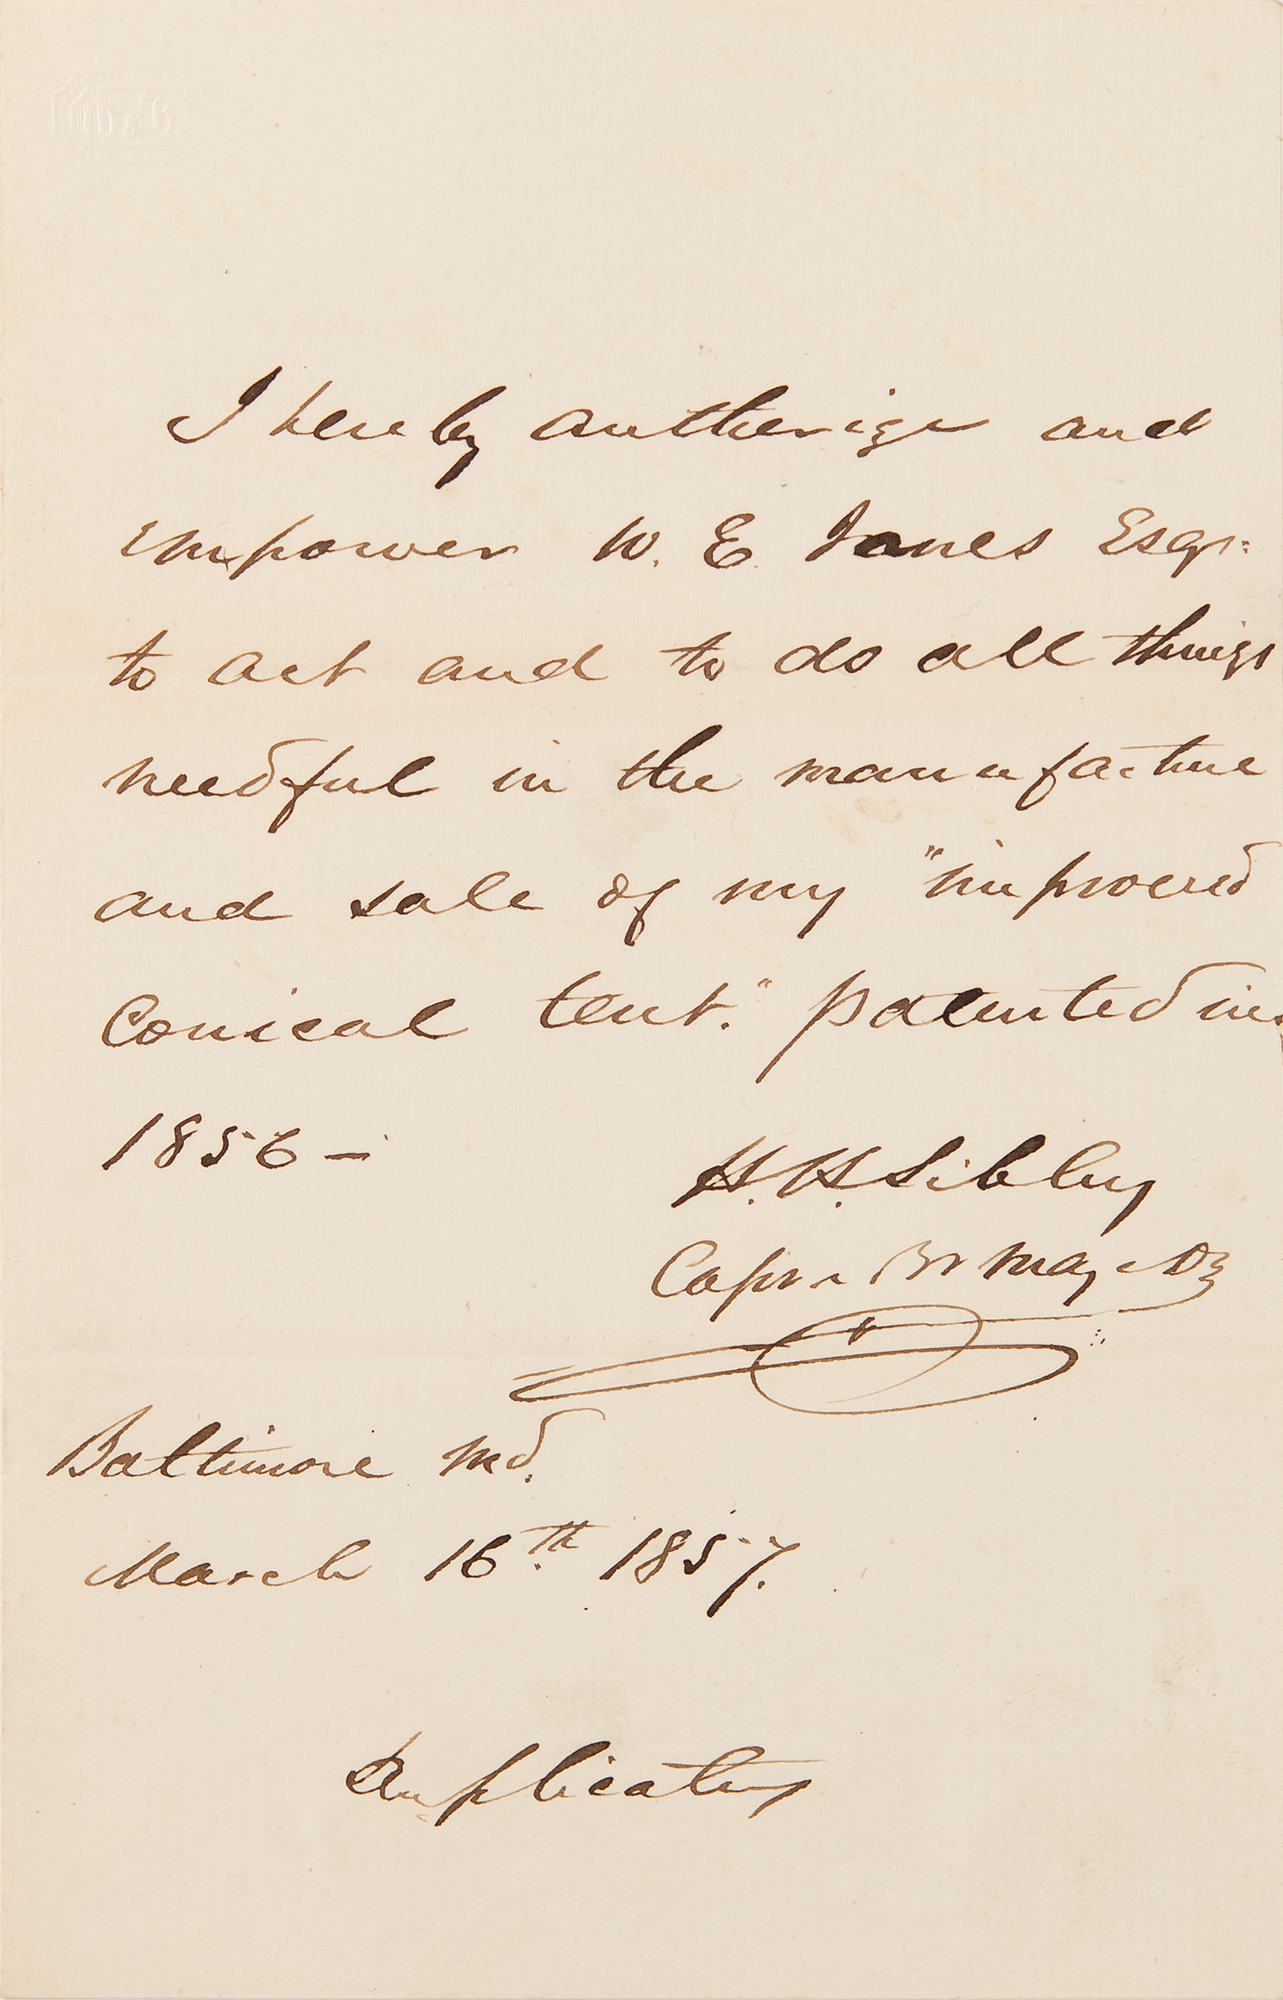 I hereby authorize and
empower W. E. Jones Esqr:
to act and to do all things
needful in the manufacture
and sale of my "improved
Conical tent." patented in
1856 –
H. H. Sibley
Capt & Bt Maj
Baltimore Md.
March 16th 1857.
Duplicates